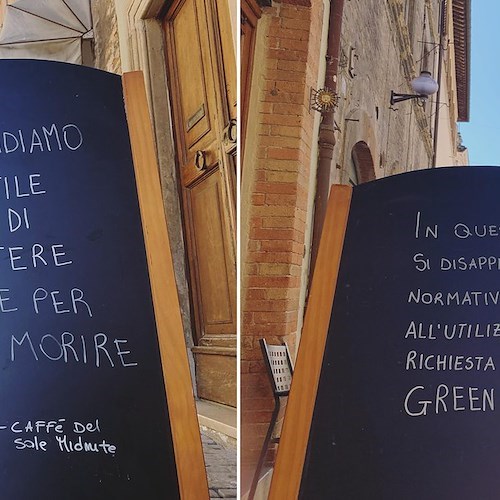 DIAMO
TILE
DI
TERE
E PER
MORIRE
-CAFFÉ DEL
SOLE MIDNUTE
IN QUE
SI DISAPP
NORMATIV
ALL'UTILIZ
RICHIESTA
GREEN